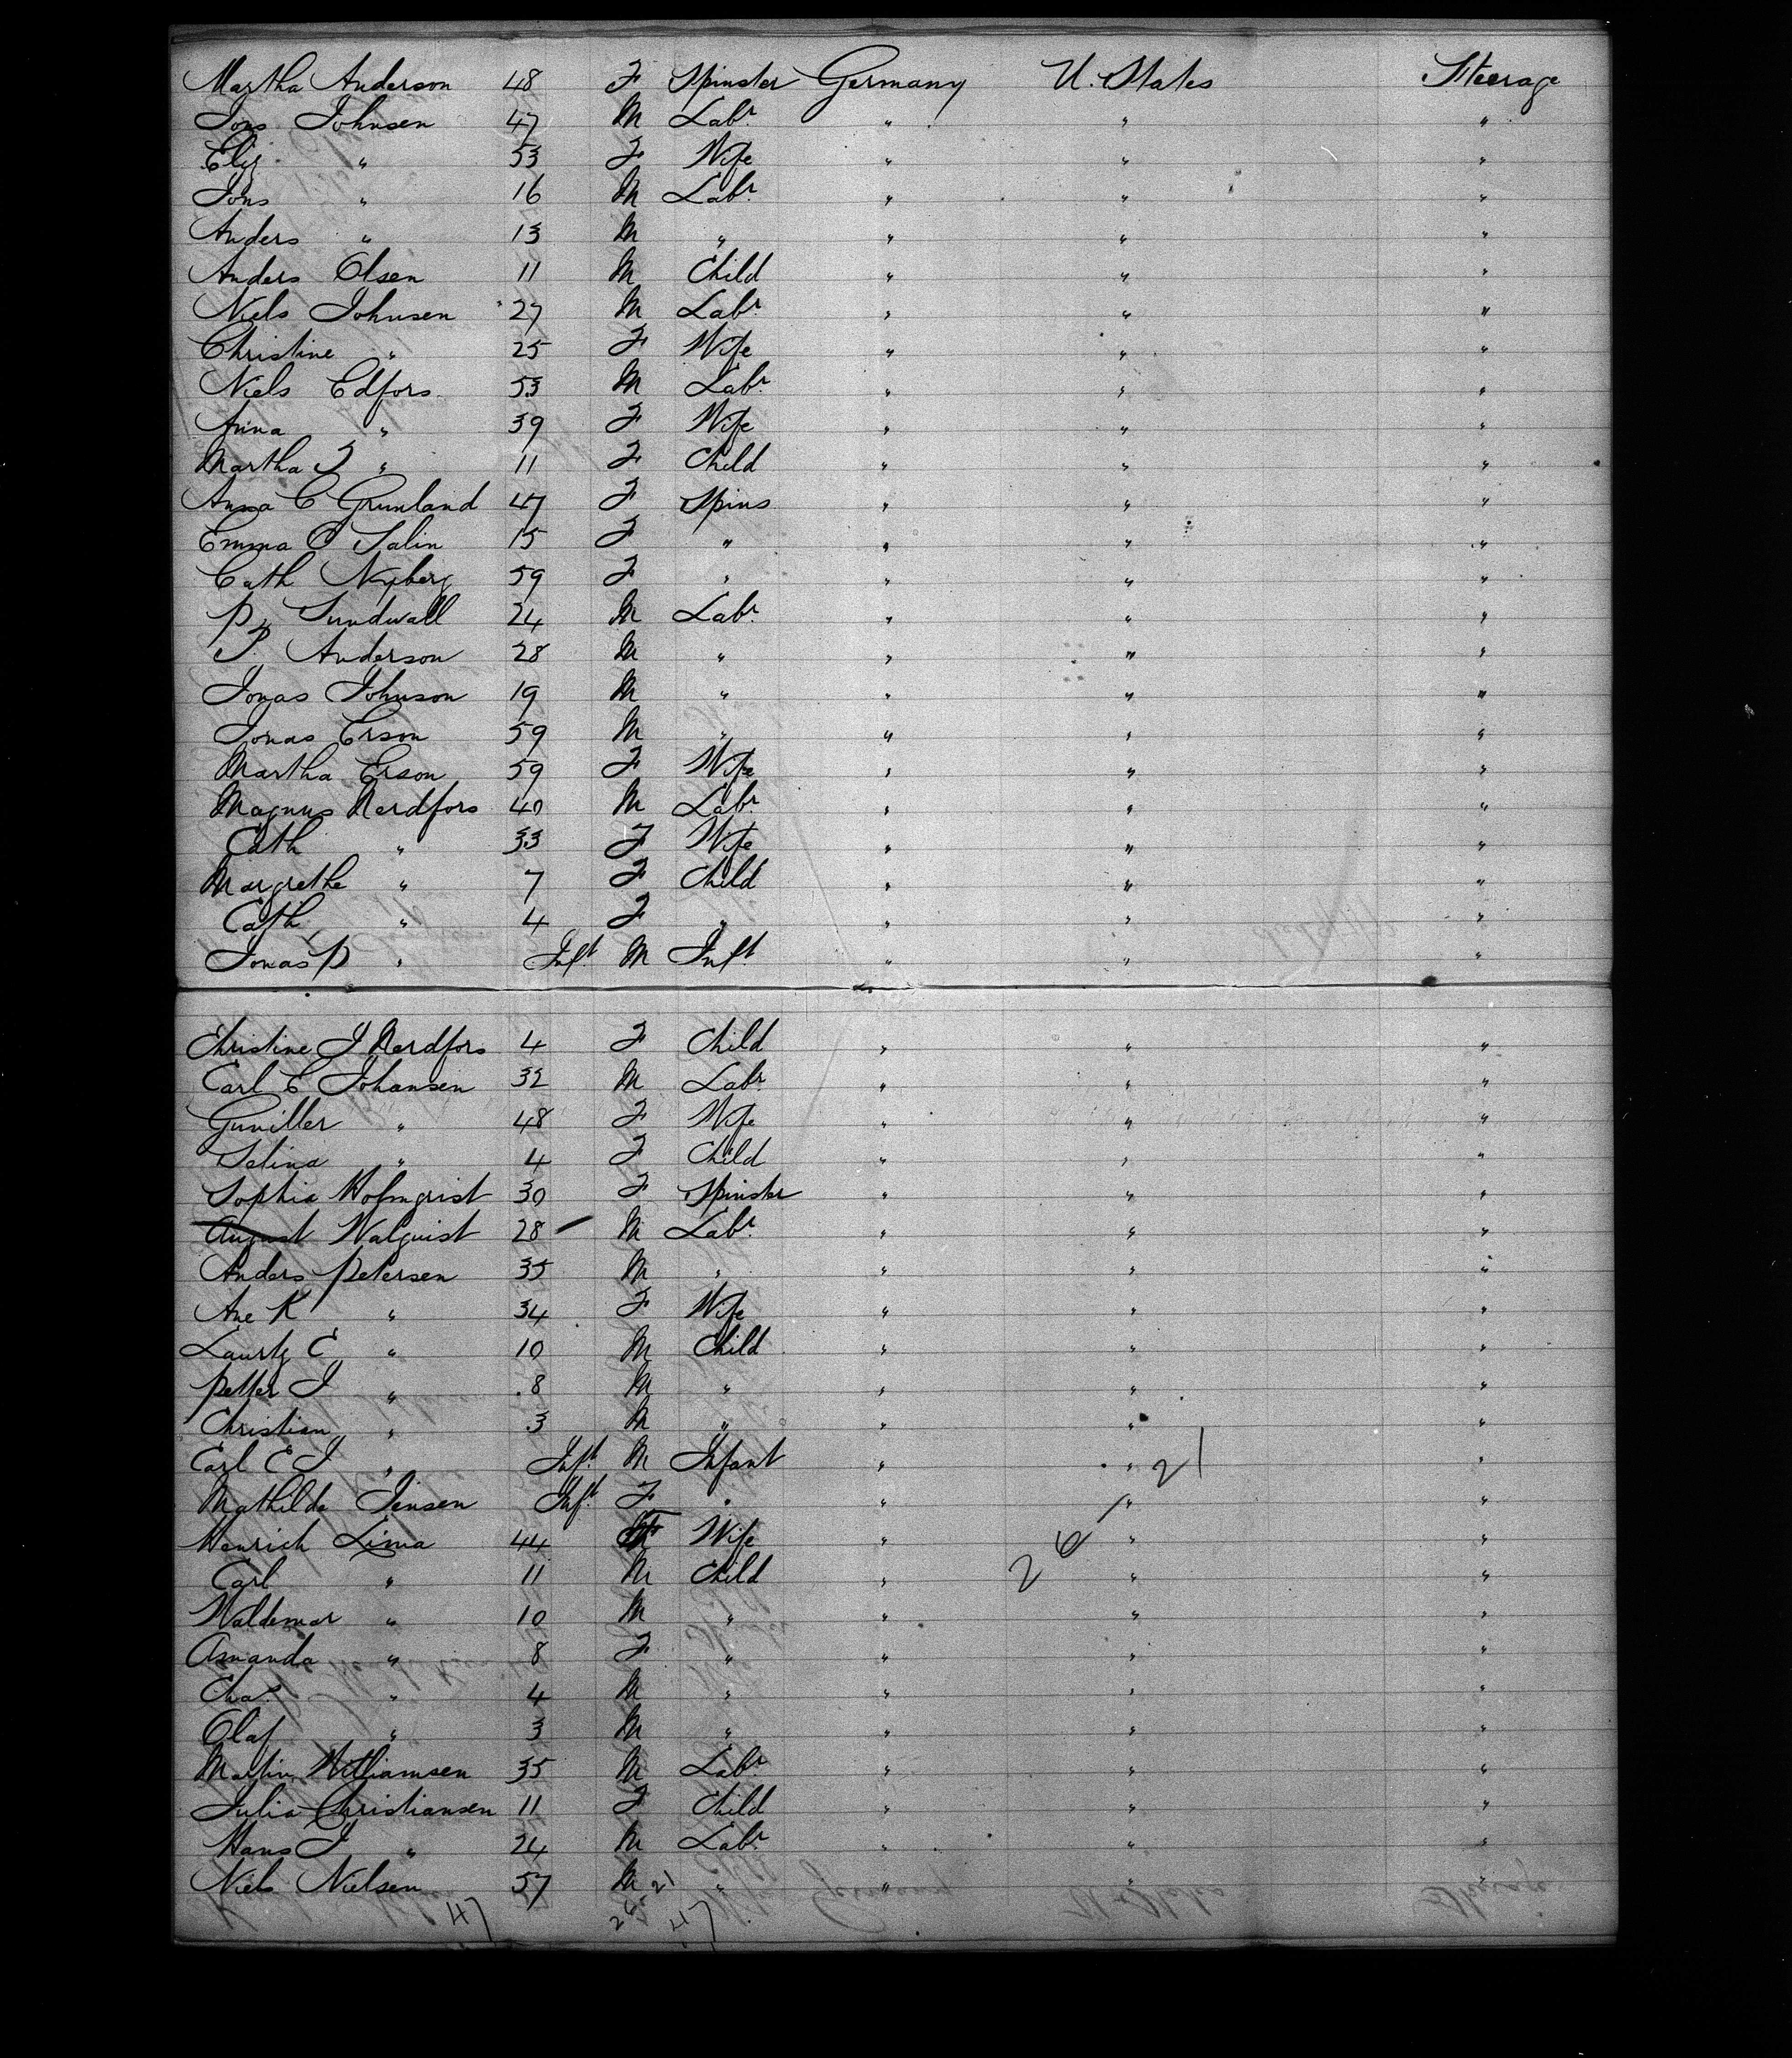 Martha Anderson 48 F Spinster Germany U. States Steerage
Jons Johnsen 47 M Labr. " " "
Eliz " 53 F Wife " " "
Jons " 16 M Labr. " " "
Anders " 13 M " " " "
Anders Olsen 11 M Child " " "
Niels Johnsen 27 M Labr. " " "
Christine " 25 F Wife " " "
Niels Edfors 53 M Labr. " " "
Anna " 39 F Wife " " "
Martha J " 11 F Child " " "
Anna C Grunland 47 F Spins " " "
Emma C Salin 15 F " " " "
Cath Nyberg 59 F " " " "
P. Sundwall 24 M Labr. " " "
P. Anderson 28 M " " " "
Jonas Johnson 19 M " " " "
Jonas Erson 59 M " " " "
Martha Erson 59 F Wife " " "
Magnus Nerdfors 40 M Labr. " " "
Cath " 33 F Wife " " "
Margrethe " 7 F Child " " "
Cath " 4 F " " " "
Jonas P " Inft M Inft " " "
Christine J Nerdfors 4 F Child " " "
Carl E Johansen 32 M Labr. " " "
Guniller " 48 F Wife " " "
Selina " 4 F Child " " "
Sophia Holmqrist 30 F Spinster " " "
August Walquist 28 M Labr. " " "
Anders Petersen 35 M " " " "
Ane K " 34 F Wife " " "
Laurtz E " 10 M Child " " "
Petter J " 8 M " " " "
Christian " 3 M " " " "
Carl E J " Inft. M Infant " " 21 "
Mathilde Jensen Inft. F " " " "
Henrich Lima 44 F Wife " " "
Carl " 11 M Child " 26 " "
Waldemar " 10 M " " " "
Amanda " 8 F " " " "
Chas. " 4 M " " " "
Olaf " 3 M " " " "
Martin Williamsen 35 M Labr. " " "
Julia Christiansen 11 F Child " " "
Hans J " 24 M Labr. " " "
Niels Nielsen 57 M 21 " " " "
47 26 47